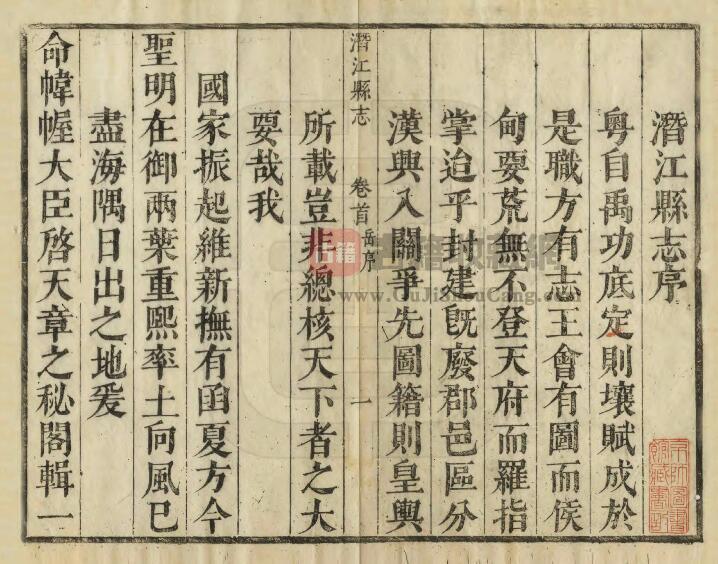 潛江縣志序
粤自禹功底定則壤賦成於
是職方有志王會有圖而侯
甸要荒無不登天府而羅指
掌迨乎封建旣廢郡邑區分
漢興入關爭先圖籍則皇輿
潛江縣志 卷首 岳序 一
所載豈非總核天下者之大
要哉我
國家振起維新撫有函夏方今
聖明在御兩葉重熙率土向風已
盡海隅日出之地爰
命帷幄大臣啓天章之秘閣輯一
古籍
www.GuJiShouCang.com